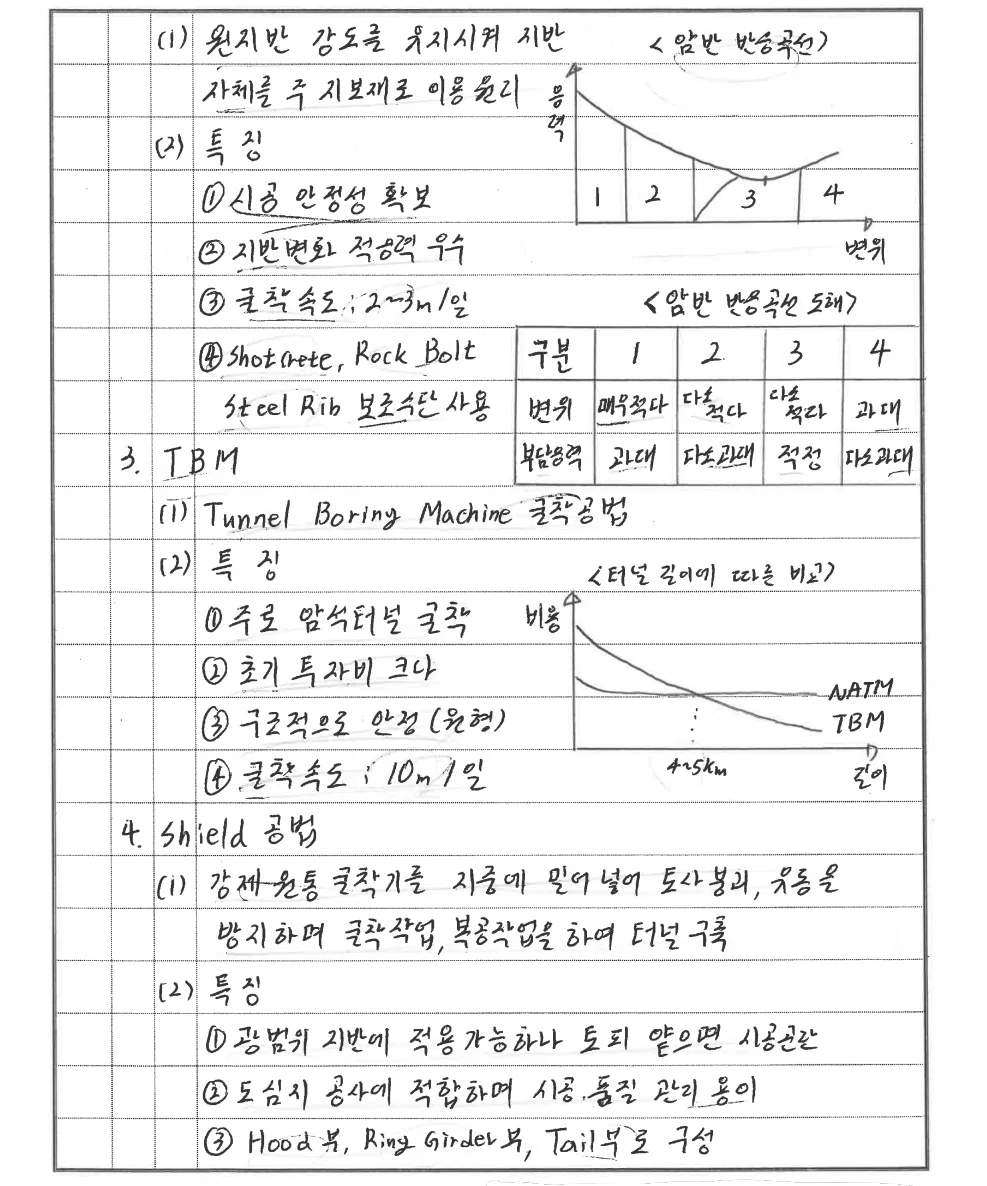 (1) 원지반 강도를 유지시켜 지반
자체를 주 지보재로 이용 원리
(2) 특징
① 시공 안정성 확보
② 지반변화 적응력 우수
③ 굴착속도 : 2~3m/일
④ Shotcrete, Rock Bolt
Steel Rib 보조수단 사용
<암반 반응곡선>
응력
1 2 3 4
변위
<암반 반응곡선 도해>
구분 1 2 3 4
변위 매우적다 다소적다 다소적다 과대
부담응력 과대 다소과대 적정 다소과대
3. TBM
(1) Tunnel Boring Machine 굴착공법
(2) 특징
① 주로 암석터널 굴착
② 초기 투자비 크다
③ 구조적으로 안정 (원형)
④ 굴착속도 : 10m/일
<터널 길이에 따른 비교>
비용
NATM
TBM
4~5km
길이
4. Shield 공법
(1) 강제 원통 굴착기를 지중에 밀어 넣어 토사붕괴, 유동을
방지하며 굴착작업, 복공작업을 하여 터널 구축
(2) 특징
① 광범위 지반에 적용가능하나 토피 얕으면 시공곤란
② 도심지 공사에 적합하며 시공.품질 관리 용이
③ Hood부, Ring Girder부, Tail부로 구성